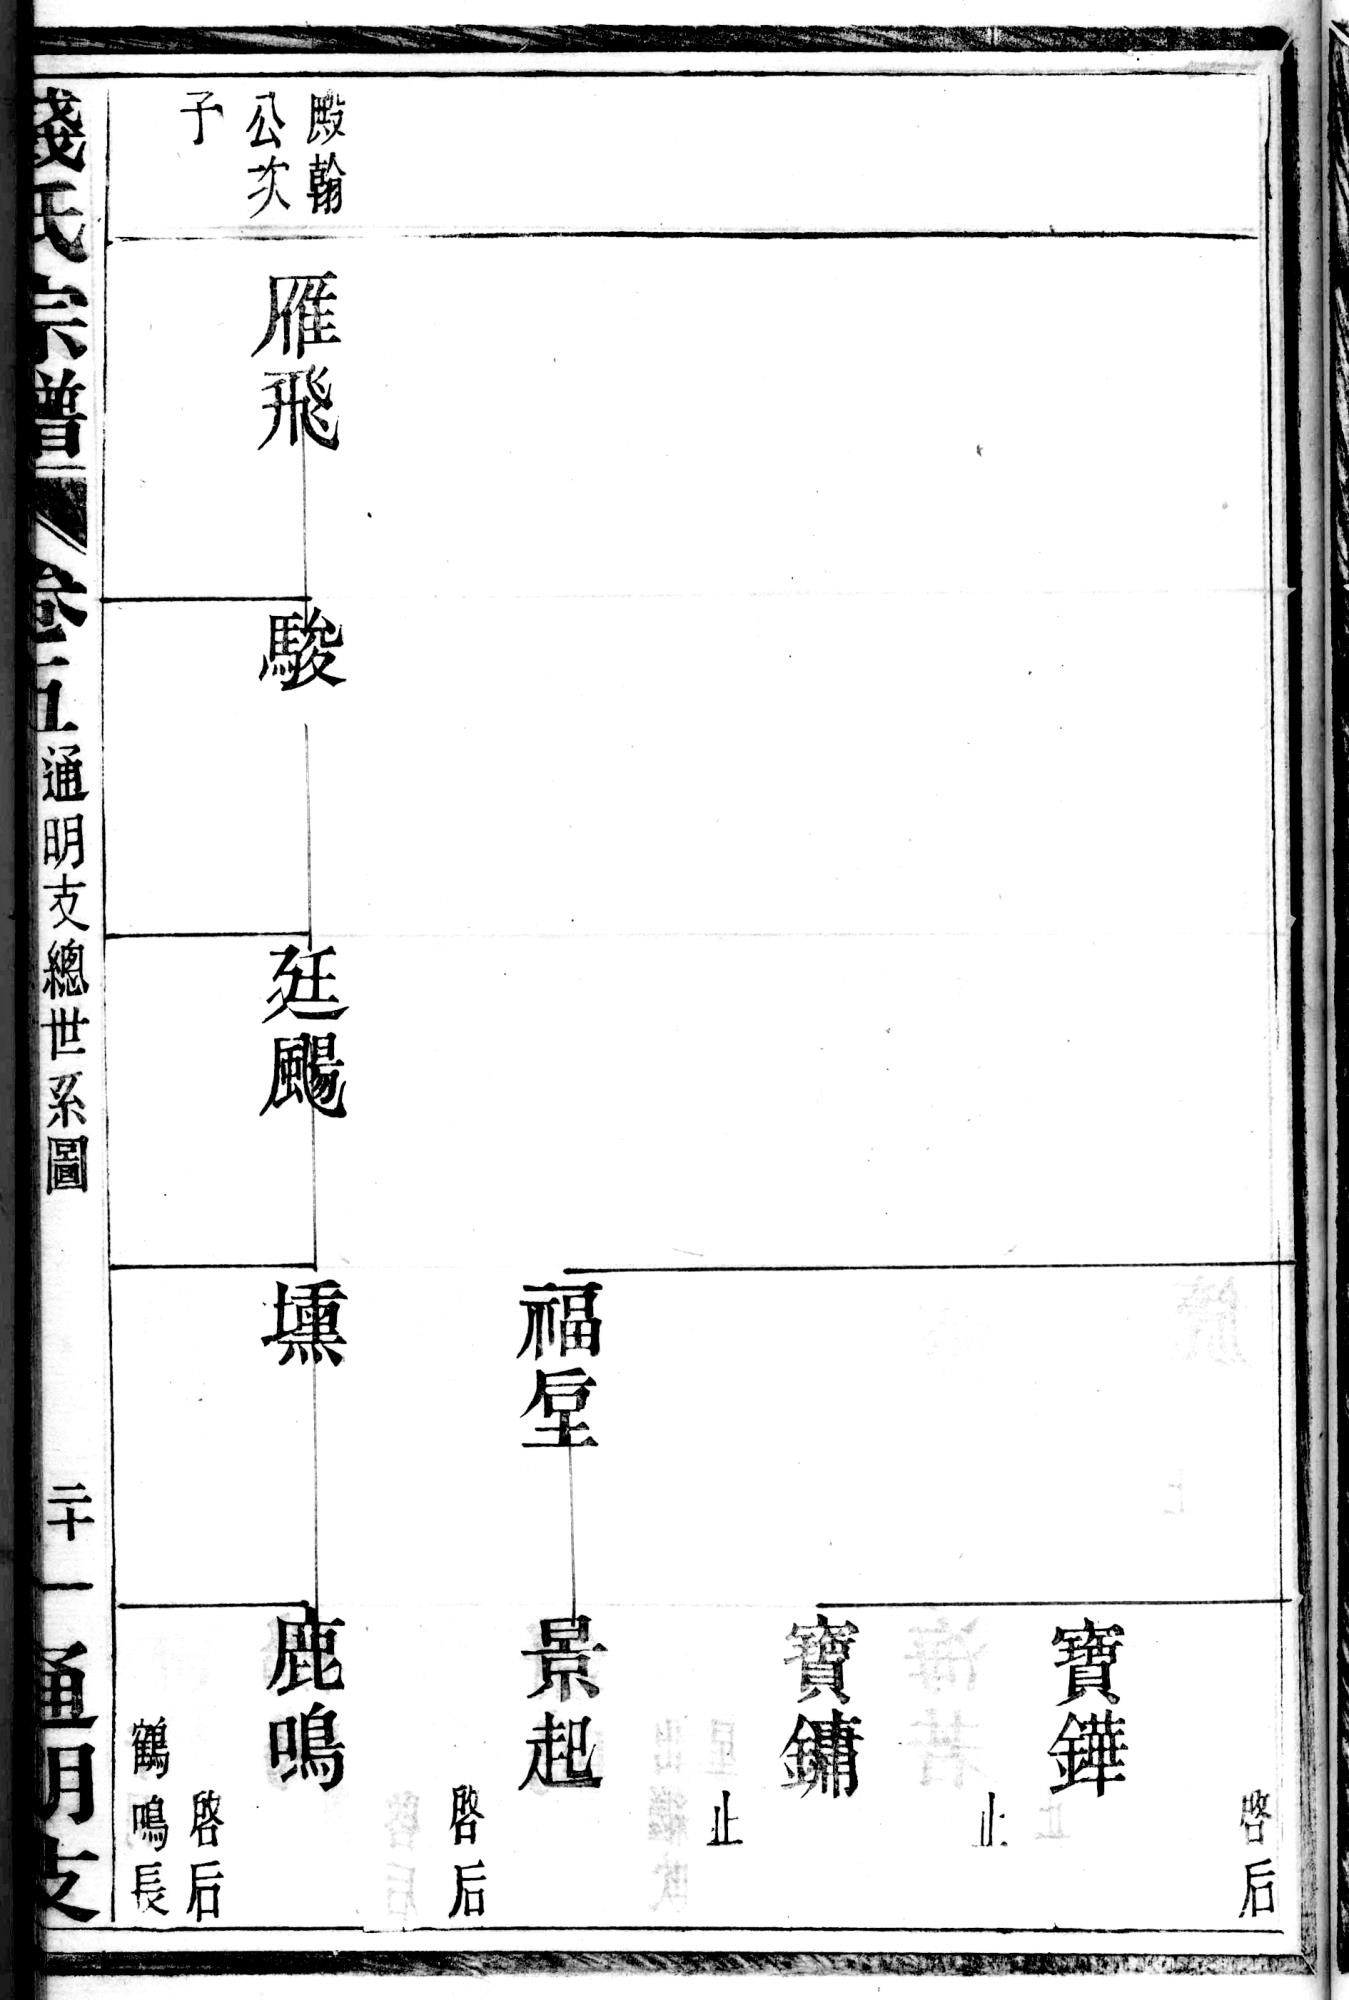 殿翰
公次
子
雁飛
駿
廷颺
壎
福堂
啓后
寶鏵
止
寶鏞
止
景起
啓后
鹿鳴
啓后
鶴鳴長
錢氏宗譜
卷五
通明支總世系圖
二十一
通明支